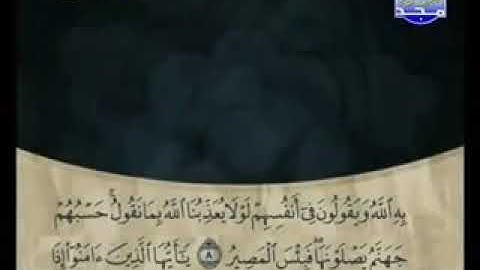 مجد
بِهِ ٱللَّهُ وَيَقُولُونَ فِىٓ أَنفُسِهِمْ لَوْلَا يُعَذِّبُنَا ٱللَّهُ بِمَا نَقُولُ ۚ حَسْبُهُمْ
جَهَنَّمُ يَصْلَوْنَهَا ۖ فَبِئْسَ ٱلْمَصِيرُ ٨ يَٰٓأَيُّهَا ٱلَّذِينَ ءَامَنُوٓا۟ إِذَا